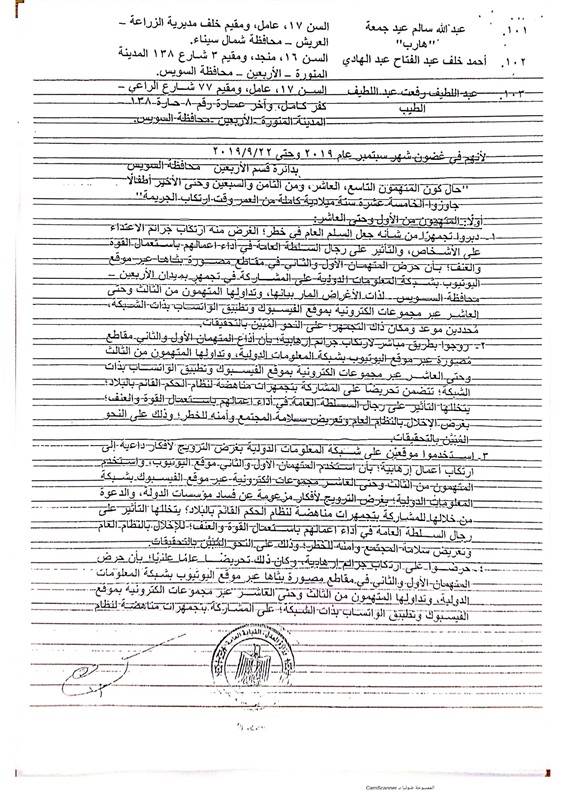 ١٠١. عبد الله سالم عيد جمعة السن ١٧، عامل، ومقيم خلف مديرية الزراعة –
"هارب" العريش – محافظة شمال سيناء.
١٠٢. أحمد خلف عبد الفتاح عبد الهادي السن ١٦، منجد، ومقيم ٣ شارع ١٣٨ المدينة
المنورة – الأربعين – محافظة السويس.
١٠٣. عبد اللطيف رفعت عبد اللطيف السن ١٧، عامل، ومقيم ٧٧ شارع الراعي –
الطيب كفر كامل، وآخر عمارة رقم ٨ حارة ١٣٨ –
المدينة المنورة – الأربعين – محافظة السويس.
لأنهم في غضون شهر سبتمبر عام ٢٠١٩ وحتى ٢٠١٩/٩/٢٢
بدائرة قسم الأربعين محافظة السويس
"حال كون المتهمون التاسع، العاشر، ومن الثامن والسبعين وحتى الأخير أطفالًا
جاوزوا الخامسة عشرة سنة ميلادية كاملة من العمر وقت ارتكاب الجريمة"
أولًا: المتهمون من الأول وحتى العاشر:
١- دبروا تجمهرًا من شأنه جعل السلم العام في خطر؛ الغرض منه ارتكاب جرائم الاعتداء
على الأشخاص، والتأثير على رجال السلطة العامة في أداء أعمالهم باستعمال القوة
والعنف؛ بأن حرض المتهمان الأول والثاني في مقاطع مصورة بثاها عبر موقع
اليوتيوب بشبكة المعلومات الدولية على المشاركة في تجمهر بميدان الأربعين –
محافظة السويس – لذات الأغراض المار بيانها، وتداولها المتهمون من الثالث وحتى
العاشر عبر مجموعات الكترونية بموقع الفيسبوك وتطبيق الواتساب بذات الشبكة،
مُحددين موعد ومكان ذاك التجمهر؛ على النحو المُبيَّن بالتحقيقات.
٢- روجوا بطريق مباشر لارتكاب جرائم إرهابية؛ بأن أذاع المتهمان الأول والثاني مقاطع
مُصورة عبر موقع اليوتيوب بشبكة المعلومات الدولية، وتداولها المتهمون من الثالث
وحتى العاشر عبر مجموعات الكترونية بموقع الفيسبوك وتطبيق الواتساب بذات
الشبكة؛ تتضمن تحريضًا على المشاركة بتجمهرات مناهضة لنظام الحكم القائم بالبلاد؛
يتخللها التأثير على رجال السلطة العامة في أداء أعمالهم باستعمال القوة والعنف؛
بغرض الإخلال بالنظام العام وتعريض سلامة المجتمع وأمنه للخطر؛ وذلك على النحو
المُبيَّن بالتحقيقات.
٣- استخدموا موقعين على شبكة المعلومات الدولية بغرض الترويج لأفكار داعية إلى
ارتكاب أعمال إرهابية؛ بأن استخدم المتهمان الأول والثاني موقع اليوتيوب، واستخدم
المتهمون من الثالث وحتى العاشر مجموعات الكترونية عبر موقع الفيسبوك بشبكة
المعلومات الدولية؛ بغرض الترويج لأفكار مزعومة عن فساد مؤسسات الدولة، والدعوة
من خلالها للمشاركة بتجمهرات مناهضة لنظام الحكم القائم بالبلاد؛ يتخللها التأثير على
رجال السلطة العامة في أداء أعمالهم باستعمال القوة والعنف؛ للإخلال بالنظام العام
وتعريض سلامة المجتمع وأمنه للخطر؛ وذلك على النحو المُبيَّن بالتحقيقات.
٤- حرضوا على ارتكاب جرائم إرهابية، وكان ذلك تحريضًا عامًا علنيًا؛ بأن حرض
المتهمان الأول والثاني في مقاطع مصورة بثاها عبر موقع اليوتيوب بشبكة المعلومات
الدولية، وتداولها المتهمون من الثالث وحتى العاشر عبر مجموعات الكترونية بموقع
الفيسبوك وتطبيق الواتساب بذات الشبكة؛ على المشاركة بتجمهرات مناهضة لنظام
الممسوحة ضوئيا بـ CamScanner